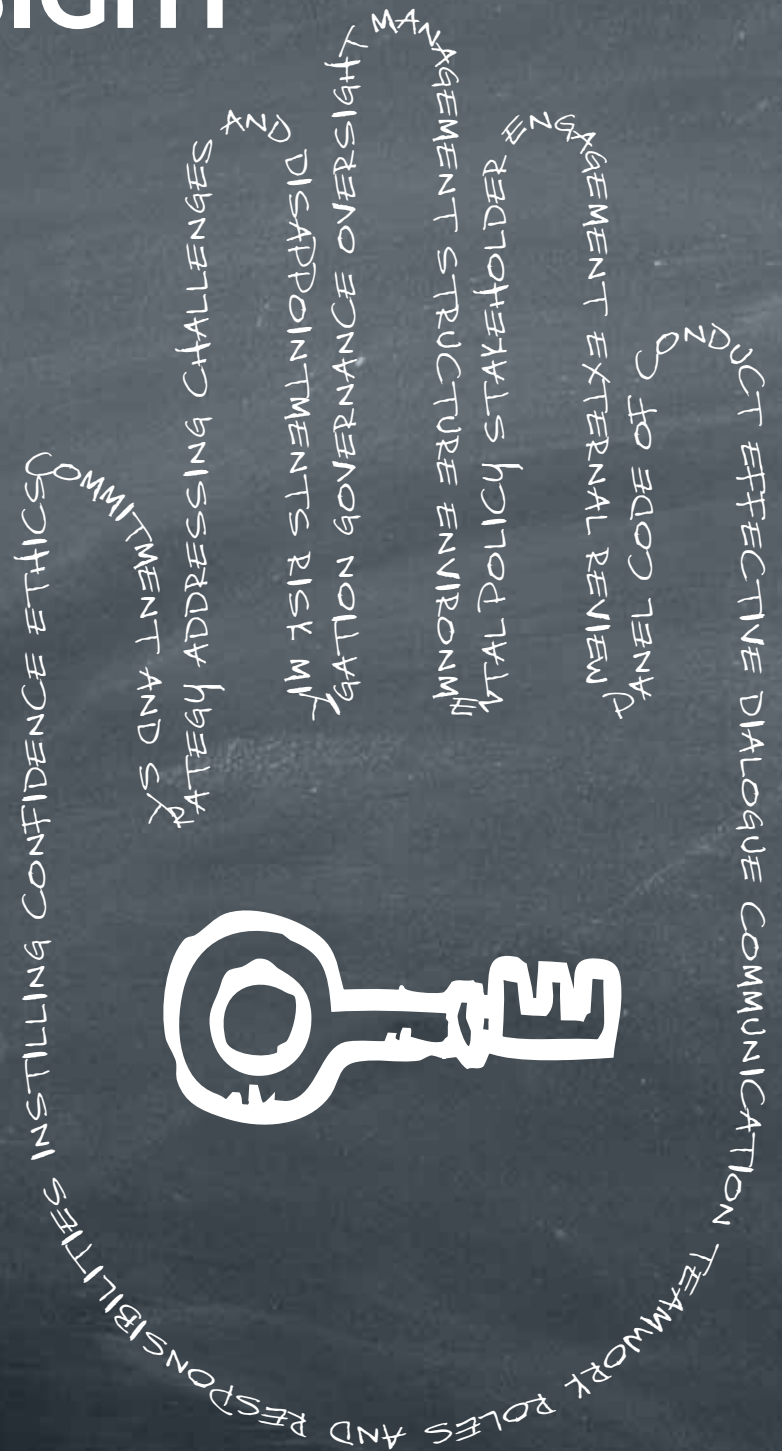 SIGHT
COMMITMENT AND STRATEGY ADDRESSING CHALLENGES AND DISAPPOINTMENTS RISK MITIGATION GOVERNANCE OVERSIGHT MANAGEMENT STRUCTURE ENVIRONMENTAL POLICY STAKEHOLDER ENGAGEMENT EXTERNAL REVIEW PANEL CODE OF CONDUCT EFFECTIVE DIALOGUE COMMUNICATION TEAMWORK ROLES AND RESPONSIBILITIES INSTILLING CONFIDENCE ETHICS